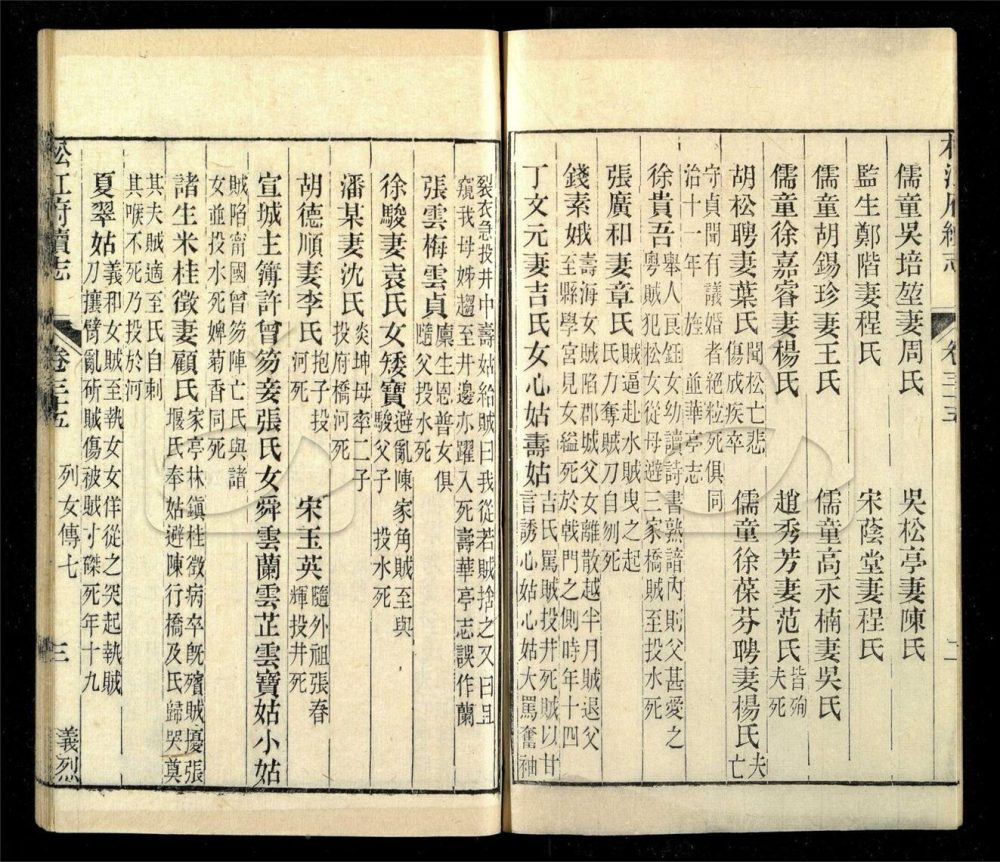 松江府續志 卷三十五 二
儒童吳培堃妻周氏 吳松亭妻陳氏
監生鄭階妻程氏 宋蔭堂妻程氏
儒童胡錫珍妻王氏 儒童高永楠妻吳氏
儒童徐嘉睿妻楊氏 趙秀芳妻范氏 皆殉夫死
胡松聘妻葉氏 聞松亡悲傷成疾卒 儒童徐葆芬聘妻楊氏 夫亡
守貞聞有議婚者絕粒死俱同治十一年 旌 並華亭志
徐貴吾 舉人艮鈺女幼讀詩書熟諳內則父甚愛之粵賊犯松女從母避三家橋賊至投水死
張廣和妻章氏 賊逼赴水賊曳之起力奪賊刀自刎死
錢素娥 壽海女賊陷郡城父女離散越半月賊退父至縣學宮見女縊死於戟門之側時年十四
丁文元妻吉氏女心姑壽姑 吉氏罵賊投井死賊以甘言誘心姑心姑大罵奮袖
裂衣急投井中壽姑紿賊曰我從若賊捨之又曰且窺我母姊趨至井邊亦躍入死壽華亭志誤作蘭
張雲梅雲貞 廩生恩普女俱隨父投水死
徐駿妻袁氏女矮寶 避亂陳家角賊至與駿父子投水死
潘某妻沈氏 炎坤母率二子投府橋河死
胡德順妻李氏 抱子投河死 宋玉英 隨外祖張春輝投井死
宣城主簿許曾笏妾張氏女舜雲蘭雲芷雲寶姑小姑
賊陷甯國曾笏陣亡氏與諸女並投水死婢菊香同死
諸生米桂徵妻顧氏 家亭林鎮桂徵病卒既殯賊擾張堰氏奉姑避陳行橋及氏歸哭奠
其夫賊適至氏自刺其喉不死乃投於河
夏翠姑 義和女賊至執女女佯從之突起執賊刀攘臂亂斫賊傷被賊寸磔死年十九
松江府續志 卷三十五 列女傳七 三 義烈